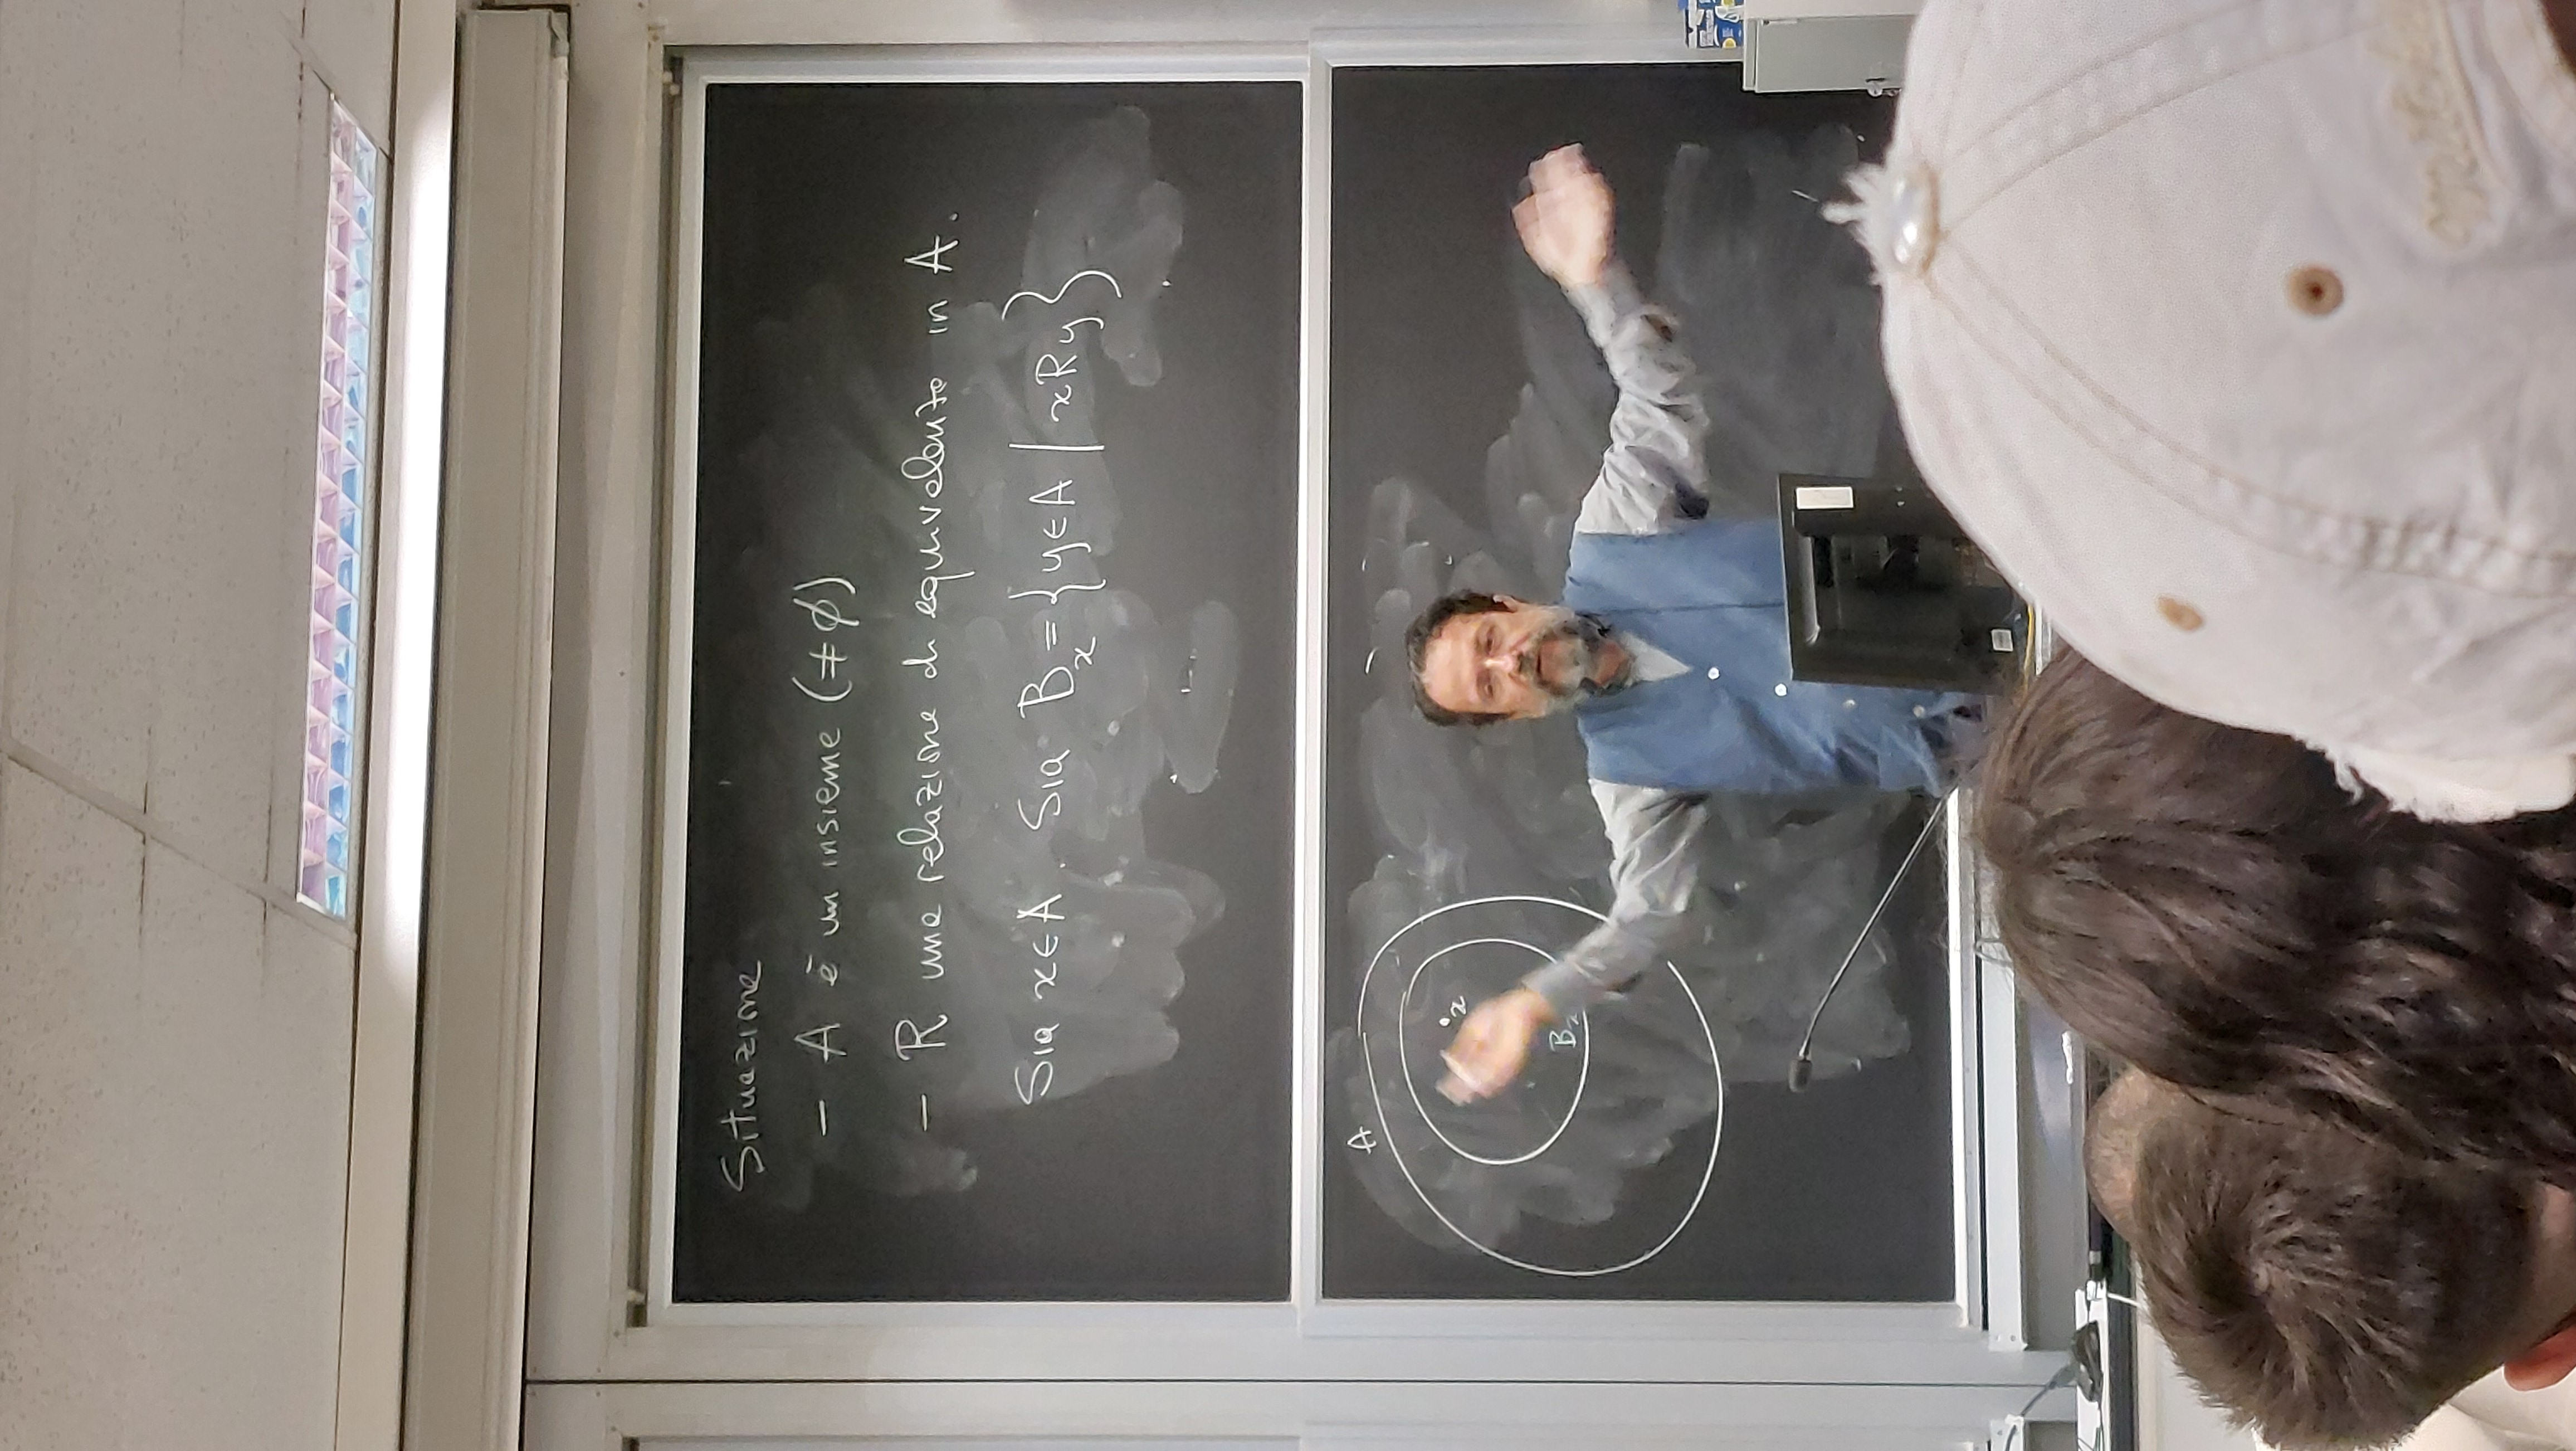 Situazione
- A è un insieme (≠∅)
- R una relazione di equivalenza in A.
Sia x∈A. Sia Bₓ={y∈A | xRy}
A
x
Bₓ